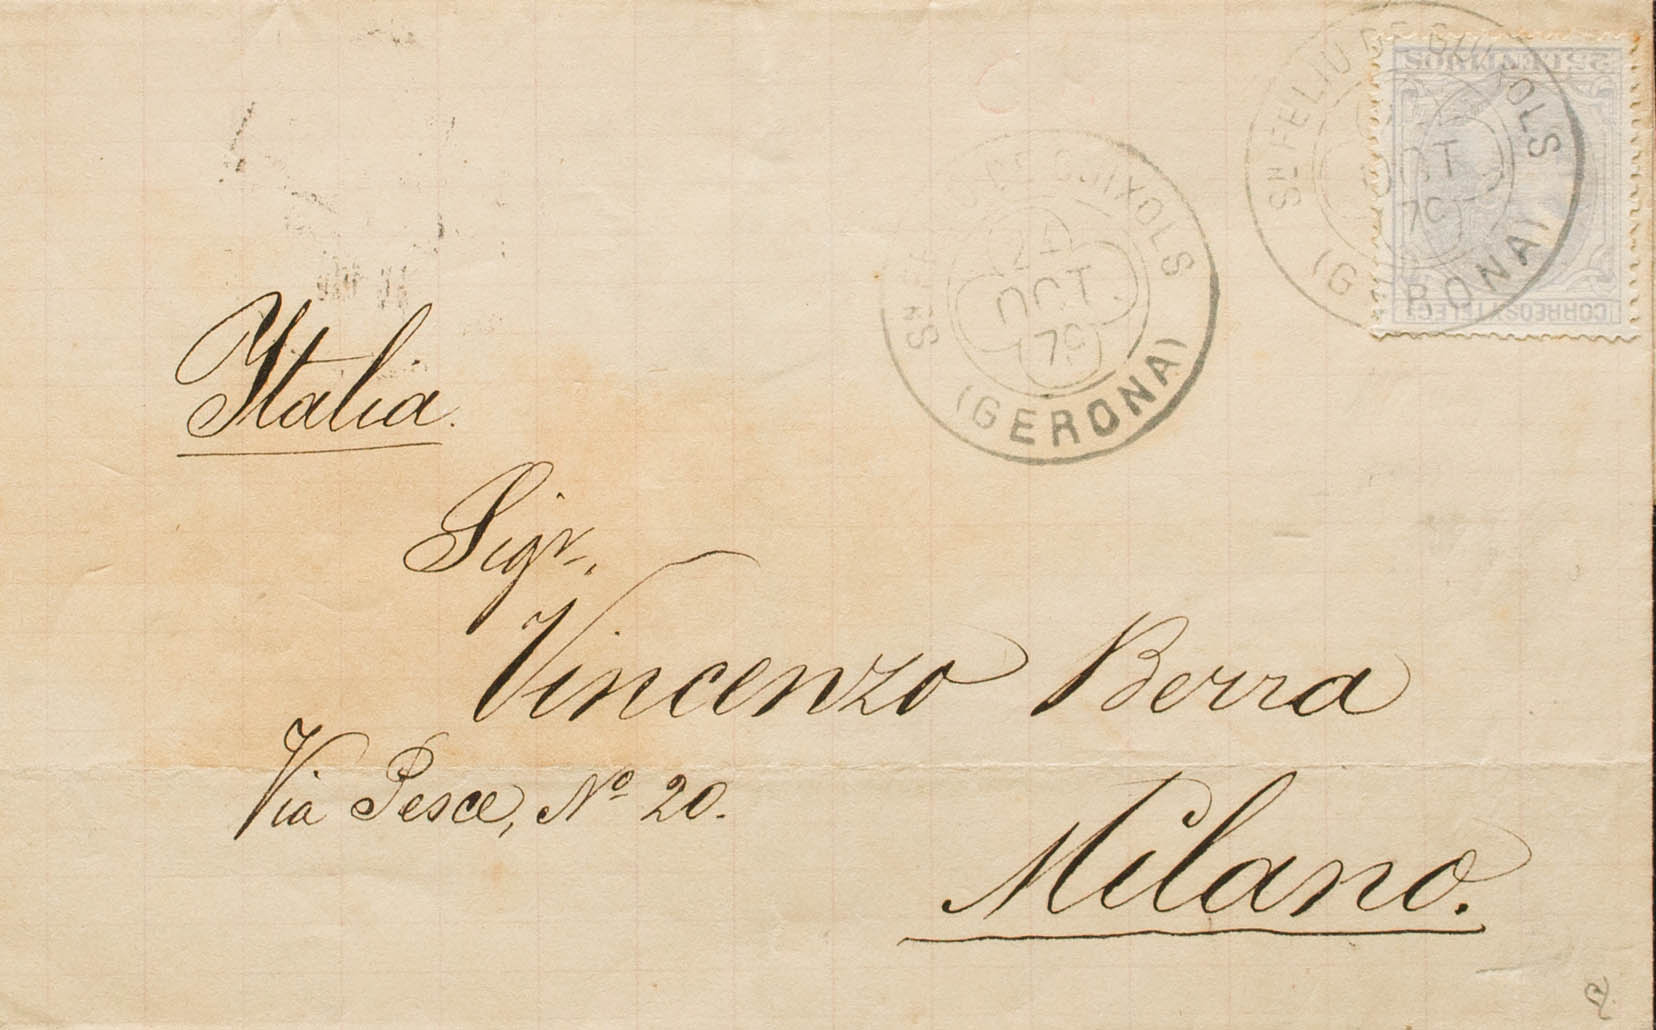 Italia.
Sigr.
Vincenzo Berra
Via Pesce, Nº 20.
Milano.
Sn FELIU DE GUIXOLS
24
OCT
79
(GERONA)
Sn FELIU DE GUIXOLS
OCT
79
(GERONA)
CORREOS Y TELEGS
25 CENTIMOS